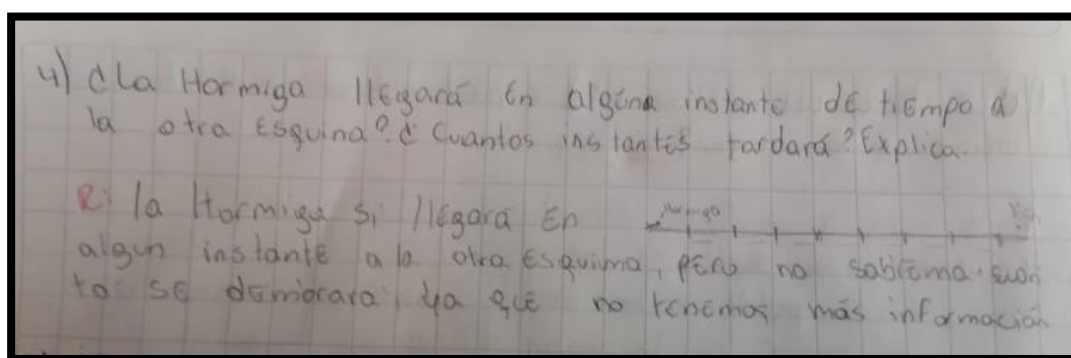 4) ¿La Hormiga llegará En algúna instante de tiempo a
la otra Esquina? ¿Cuantos instantes tardará? Explica.
R: la Hormiga si llegara En
algun instante a la otra Esquima, pero no sabrema cuon
to se demorara, ya que no tenemos más información